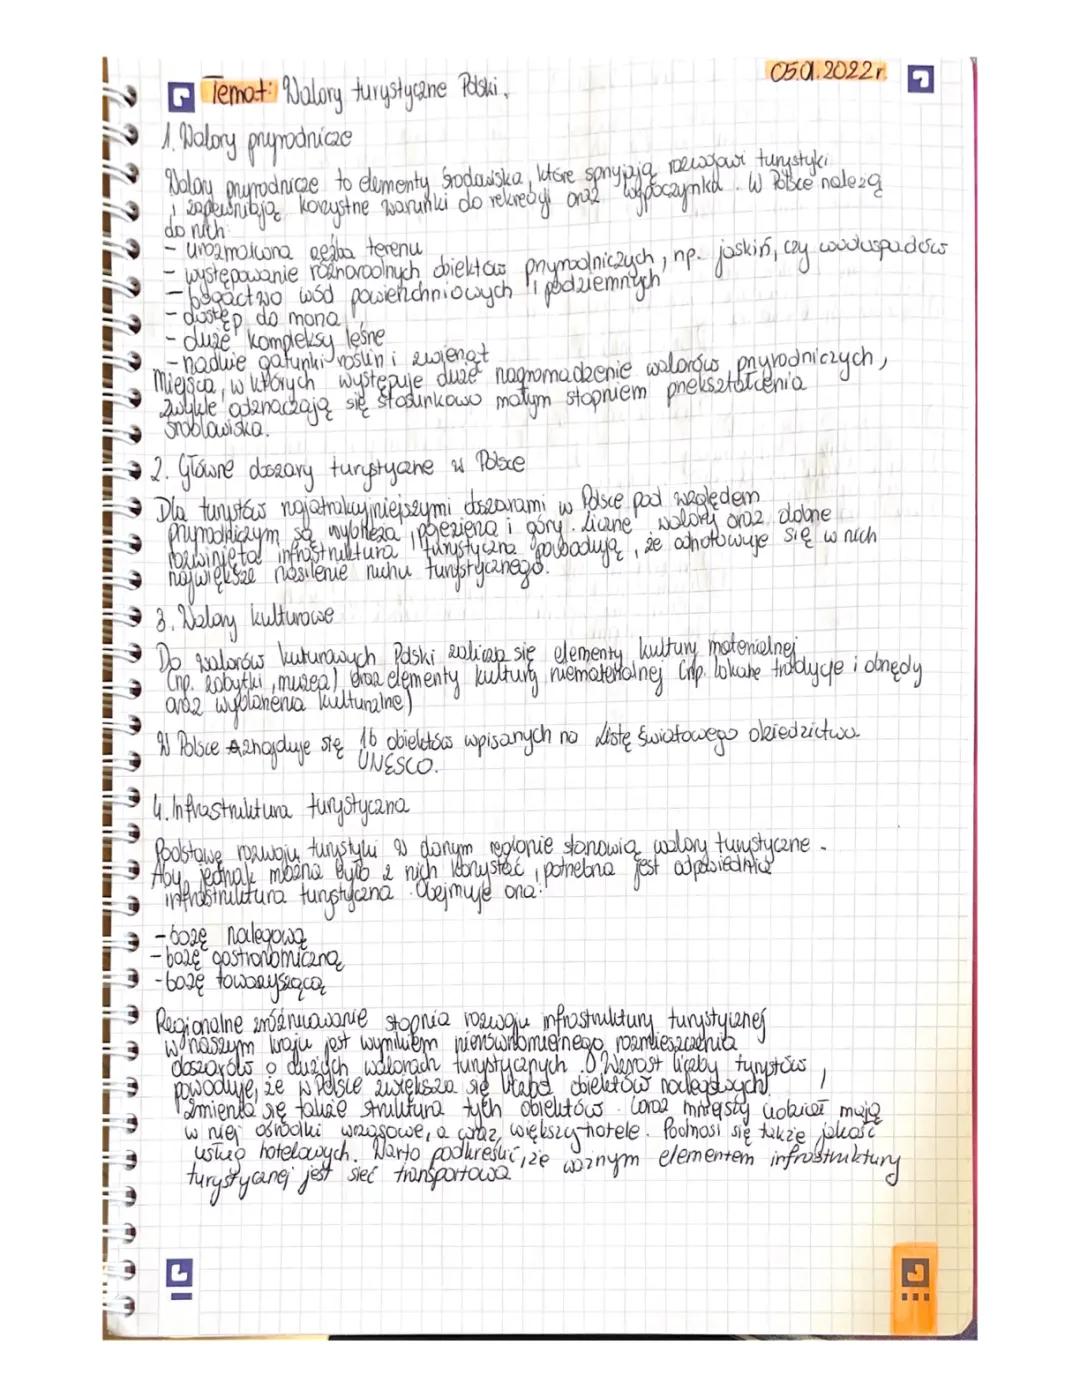 Temat: Walory turystyczne Polski.
05.01.2022r.
1. Walory przyrodnicze
Walory przyrodnicze to elementy środowiska, które sprzyjają rozwojowi turystyki
i zapewniają korzystne warunki do rekreacji oraz wypoczynku. W Polsce należą
do nich:
- urozmaicona rzeźba terenu
- występowanie różnorodnych obiektów przyrodniczych, np. jaskiń, czy wodospadów
- bogactwo wód powierzchniowych i podziemnych
- dostęp do morza
- duże kompleksy leśne
- rzadkie gatunki roślin i zwierząt
Miejsca, w których występuje duże nagromadzenie walorów przyrodniczych,
zwykle odznaczają się stosunkowo małym stopniem przekształcenia
środowiska.
2. Główne obszary turystyczne w Polsce
Dla turystów najatrakcyjniejszymi obszarami w Polsce pod względem
przyrodniczym są wybrzeża, pojezierza i góry. Liczne walory oraz dobrze
rozwinięta infrastruktura turystyczna powodują, że odnotowuje się w nich
największe nasilenie ruchu turystycznego.
3. Walory kulturowe
Do walorów kuturowych Polski zalicza się elementy kultury materialnej
(np. zabytki, muzea) oraz elementy kultury niematerialnej (np. lokalne tradycje i obrzędy
oraz wydarzenia kulturalne)
W Polsce znajduje się 16 obiektów wpisanych na Listę Światowego dziedzictwa
UNESCO.
4. Infrastruktura turystyczna
Podstawę rozwoju turystyki w danym regionie stanowią walory turystyczne.
Aby jednak można było z nich korzystać, potrzebna jest odpowiednia
infrastruktura turystyczna. Obejmuje ona:
- bazę noclegową
- bazę gastronomiczną
- bazę towarzyszącą
Regionalne zróżnicowanie stopnia rozwoju infrastruktury turystycznej
w naszym kraju jest wynikiem nierównomiernego rozmieszczenia
obszarów o dużych walorach turystycznych. Wzrost liczby turystów
powoduje, że w Polsce zwiększa się liczba obiektów noclegowych.
Zmienia się także struktura tych obiektów. Coraz mniejszy udział mają
w niej ośrodki wczasowe, a coraz większy hotele. Podnosi się także jakość
usług hotelowych. Warto podkreślić, że ważnym elementem infrastruktury
turystycznej jest sieć transportowa